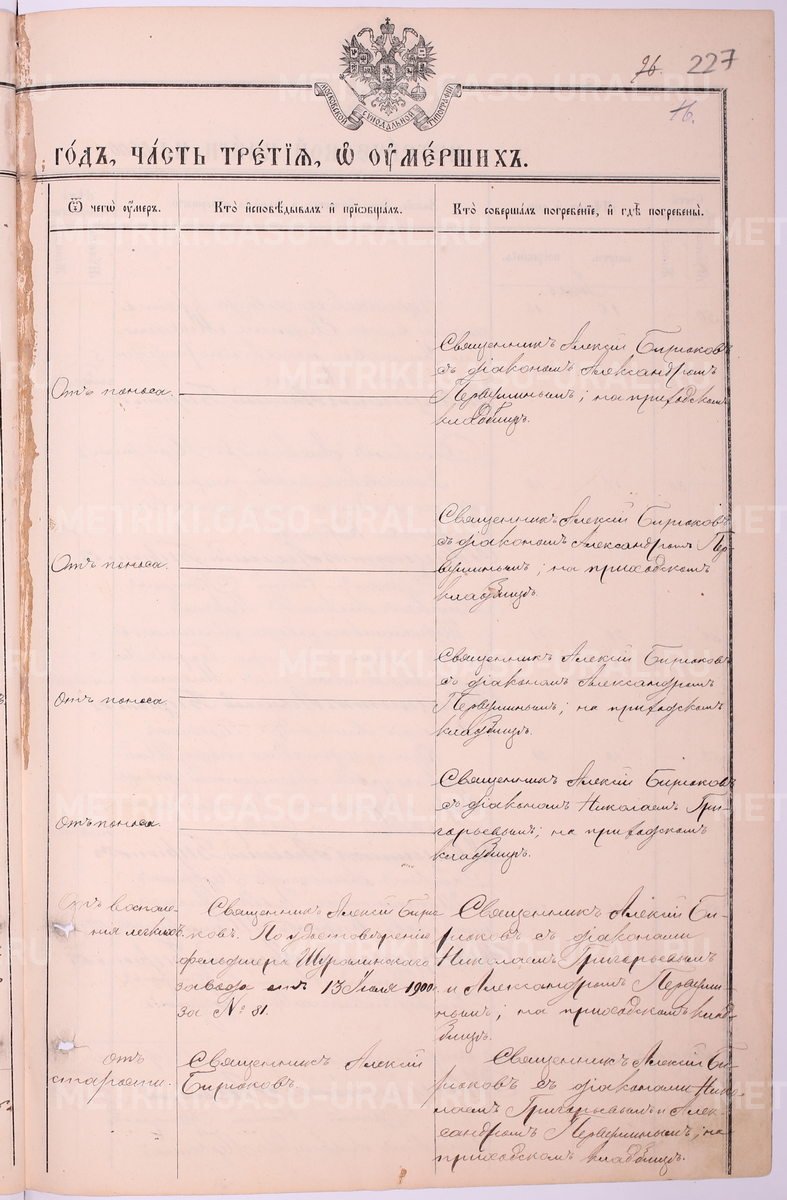 МОСКОВСКОЙ СѴНОДАЛЬНОЙ ТИПОГРАФІИ
76. 227
76.
го́дъ, ча́сть тре́тїѧ, ѡ҆ ᲂу҆ме́ршихъ.
Ѿ чегѡ̀ ᲂу҆́меръ.
Кто̀ и҆сповѣ́дывалъ и҆ прїѡбща́лъ.
Кто̀ соверша́лъ погребе́нїе, и҆ гдѣ̀ погребены̀.
Отъ поноса.
Священникъ Алексій Бирюковъ
съ діакономъ Александромъ
Первушинымъ; на приходскомъ
кладбищѣ.
Отъ поноса.
Священникъ Алексій Бирюковъ
съ діакономъ Александромъ Пер-
вушинымъ; на приходскомъ
кладбищѣ.
Отъ поноса
Священникъ Алексій Бирюковъ
съ діакономъ Александромъ
Первушинымъ; на приходскомъ
кладбищѣ.
Отъ поноса.
Священникъ Алексій Бирюковъ
съ діакономъ Николаемъ Гри-
горьевымъ; на приходскомъ
кладбищѣ.
Отъ воспале-
нія легкихъ.
Священникъ Алексій Бирю-
ковъ. По удостовѣренію
фельдшера Шуралинскаго
завода отъ 13 Іюля 1900
за № 81.
Священникъ Алексій Би-
рюковъ съ діаконами
Николаемъ Григорьевымъ
и Александромъ Первуши-
нымъ; на приходскомъ клад-
бищѣ.
отъ
старости.
Священникъ Алексій
Бирюковъ.
Священникъ Алексій Би-
рюковъ съ діаконами Нико-
лаемъ Григорьевымъ и Алек-
сандромъ Первушинымъ; на
приходскомъ кладбищѣ.
METRIKI.GASO-URAL.RU